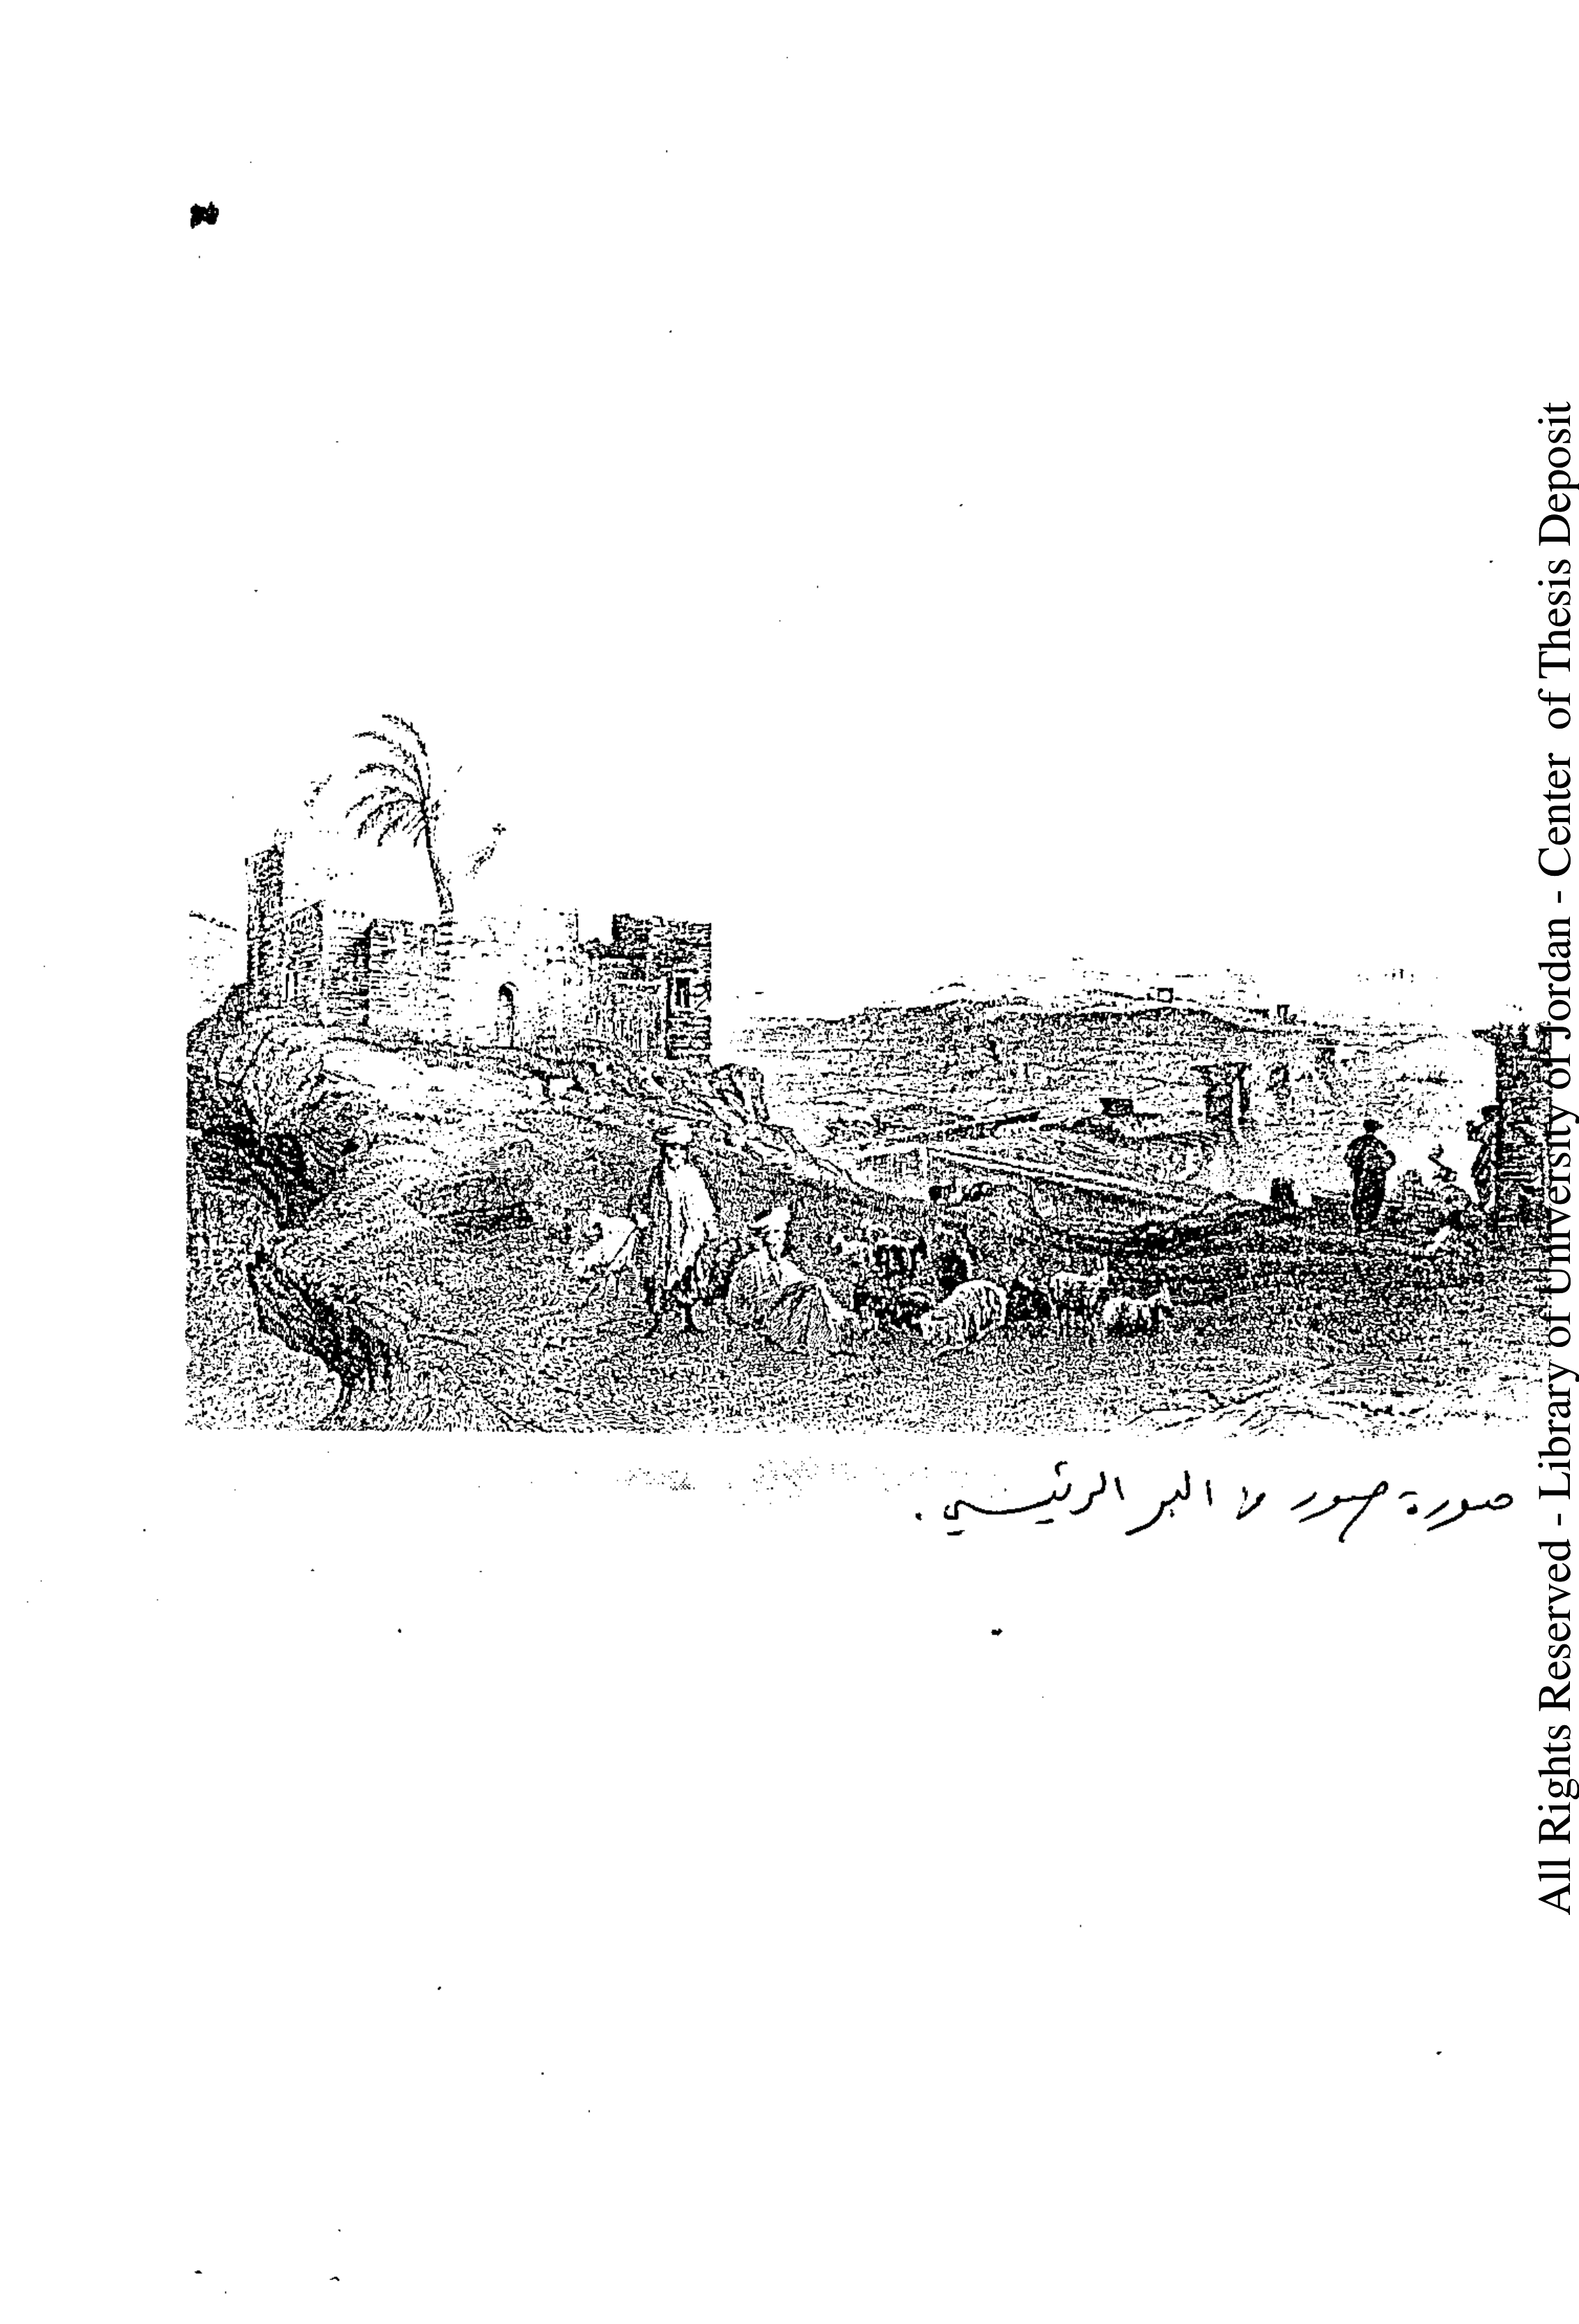 صورة صور من البر الرئيسي.
All Rights Reserved - Library of University of Jordan - Center of Thesis Deposit